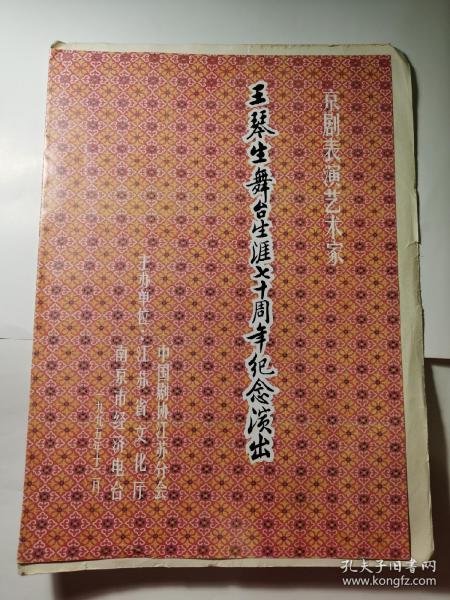 京剧表演艺术家
王琴生舞台生涯七十周年纪念演出
主办单位：
中国剧协江苏分会
江苏省文化厅
南京市经济电台
孔夫子旧书网
www.kongfz.com